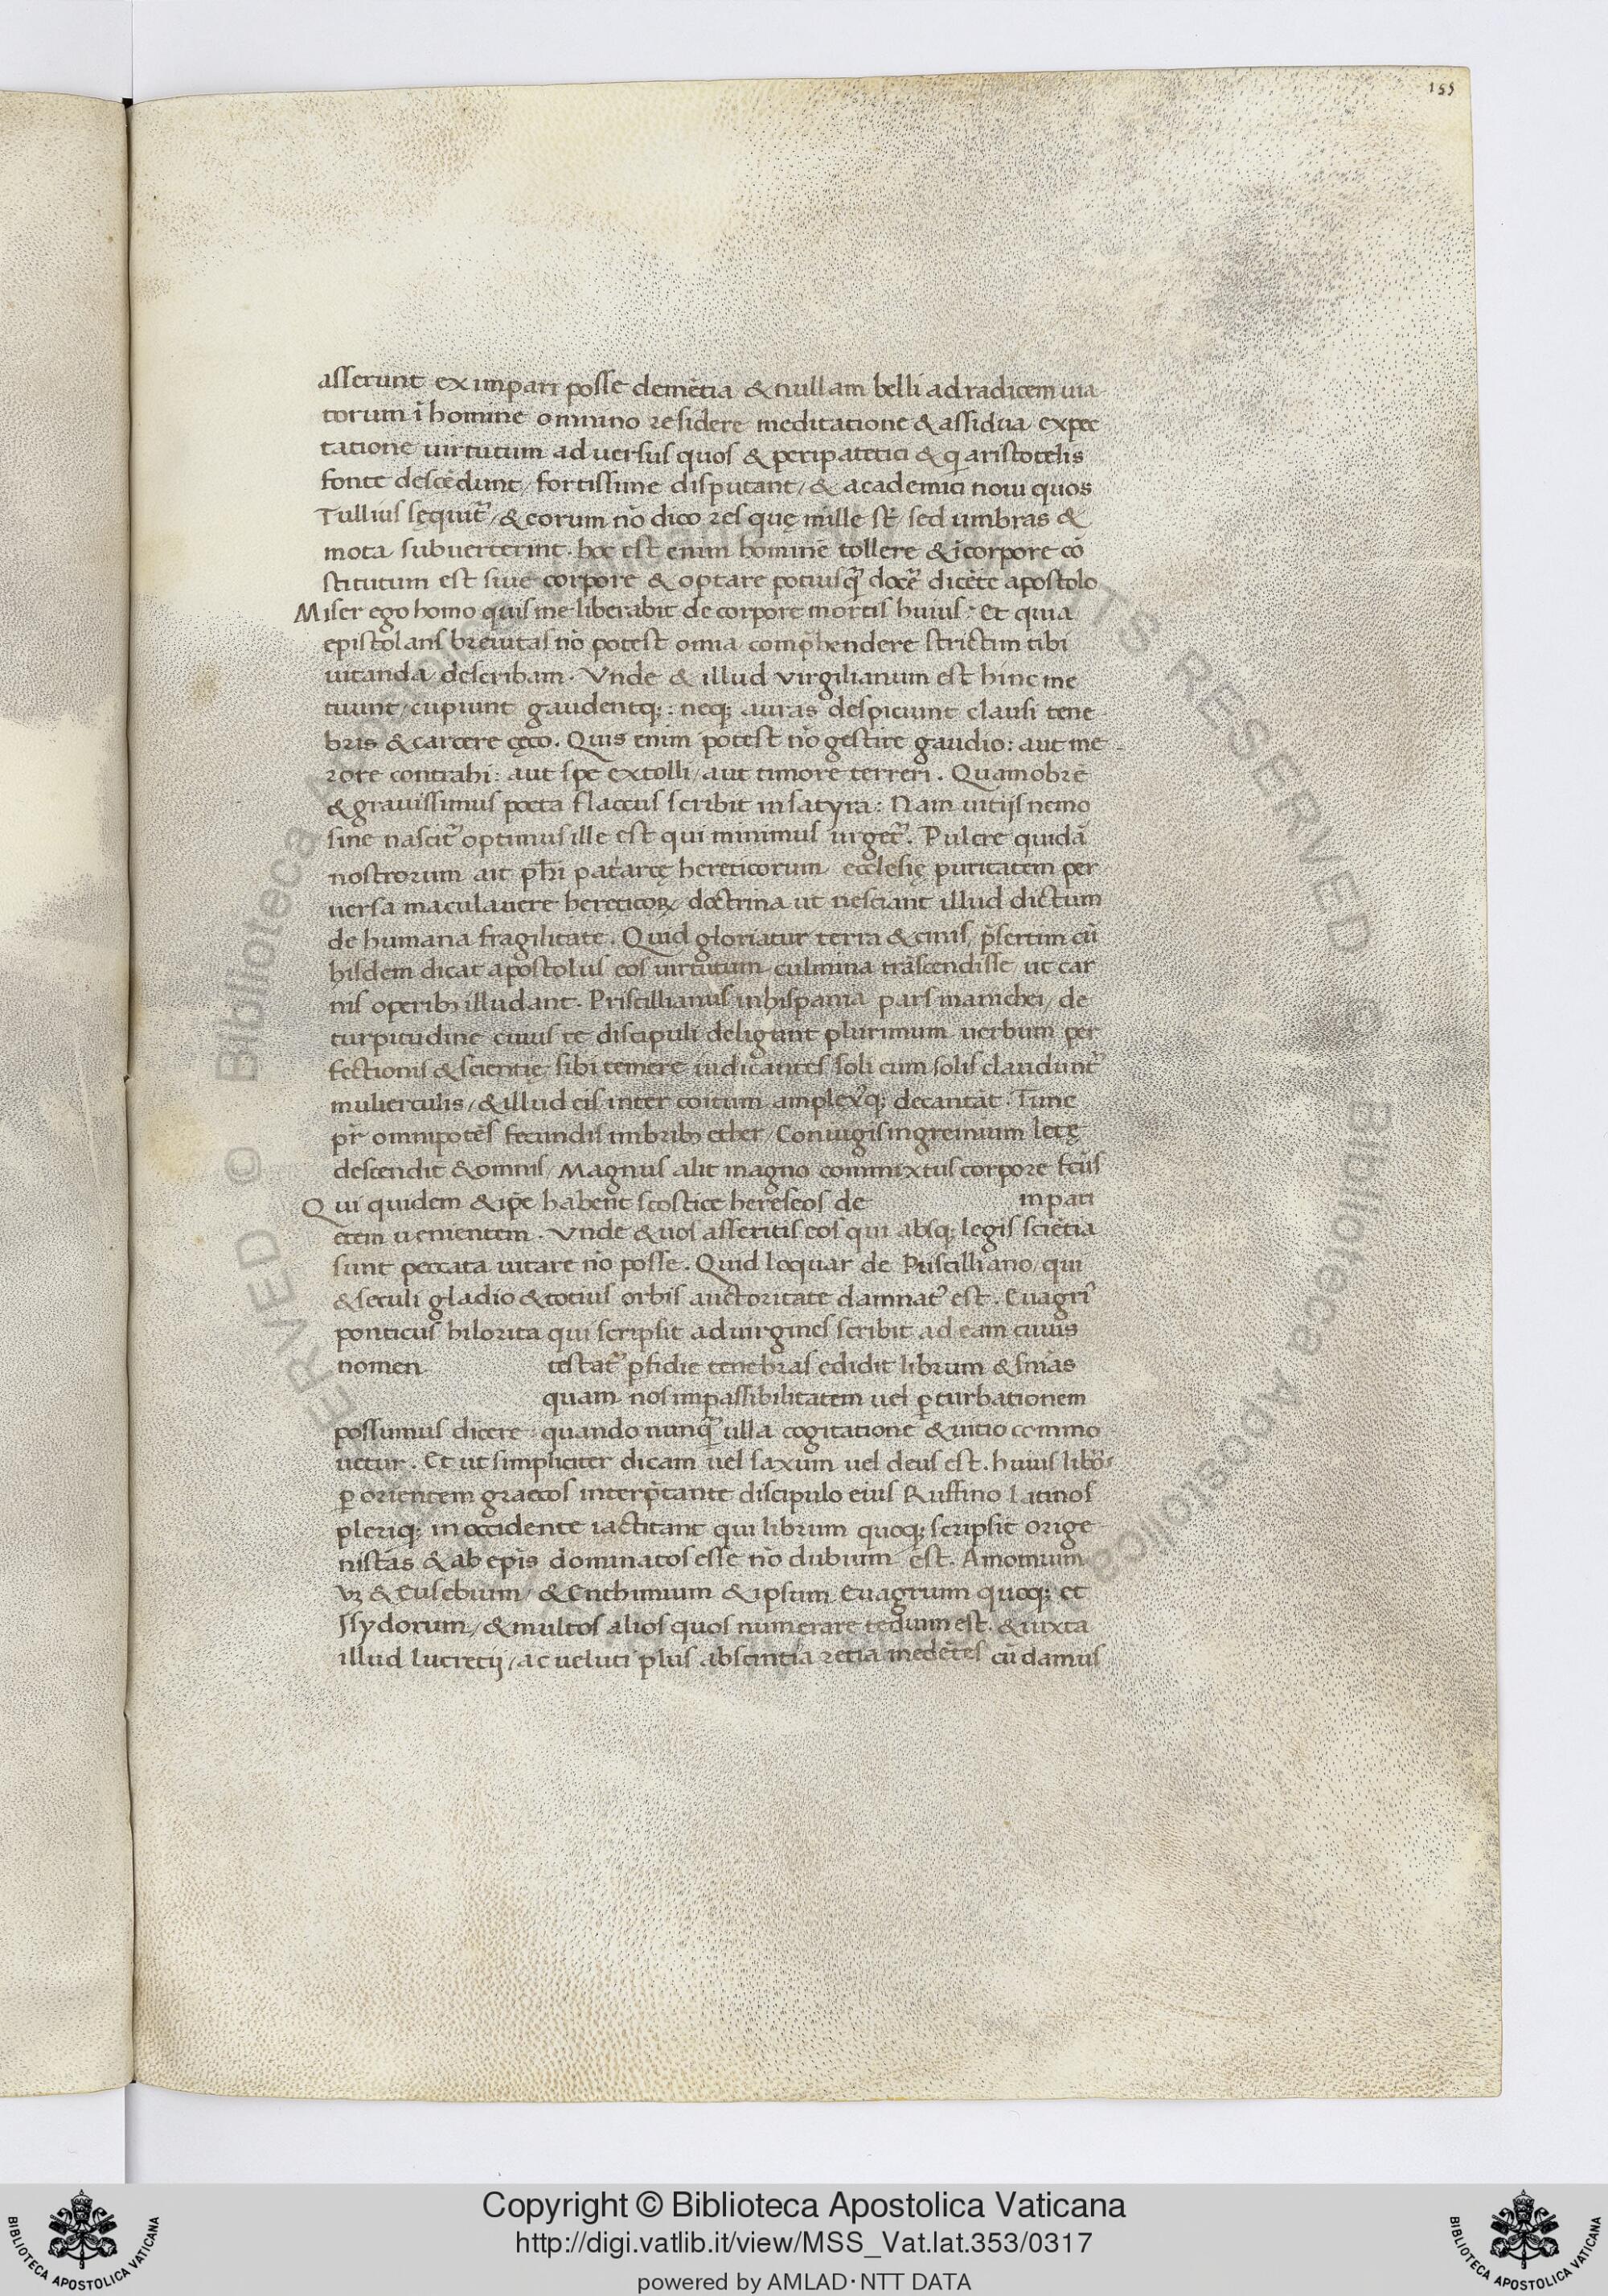 155
asserunt ex impari posse demētia & nullam belli ad radicem uia
torum ī homine omnino residere meditatione & assidua expec
tatione uirtutum aduersus quos & peripatetici & qi aristotelis
fonte descēdunt / fortissime disputant / & academici noui quos
Tullius sequit᷑ / & eorum nō dico res quę mille st̄ sed umbras &
mota subuerterint. hoc est enim hominē tollere & īcorpore cō
stitutum est siue corpore & optare potiusq̄ȝ docē᷑ dicēte apostolo
Miser ego homo quis me liberabit de corpore mortis huius. Et quia
epistolaris breuitas nō potest omia comp̄hendere strictim tibi
uitanda describam. Vnde & illud virgilianum est hinc me
tuunt / cupiunt gaudentq; : neq; auras despiciunt clausi tene
bris & carcere cęco. Quis enim potest nō gestire gaudio : aut me
rore contrahi : aut spe extolli / aut timore terreri. Quamobrē
& grauissimus poeta flaccus scribit in satyra : Nam uitijs nemo
sine nascit᷑ optimus ille est qui minimus urget᷑. Pulcre quidā
nostrorum ait ph̄i patiarcę hereticorum ecclesię puritatem per
uersa maculauere hereticoꝝ doctrina ut nesciant illud dictum
de humana fragilitate. Quid gloriatur terra & cinis / p̄sertim cū
hisdem dicat apostolus eos uirtutum culmina trāscendisse ut car
nis operibȝ illudant. Priscillianus in hispania pars manichei / de
turpitudine cuius te discipuli deligunt plurimum uerbum per
fectionis & scientię sibi temere iudicantes soli cum solis claudunt᷑
mulierculis / & illud eis inter coitum amplexꝰq; decantāt. Tunc
pr̄ omnipotēs fecundis imbribȝ ether / Coniugis in gremium letę
descendit & omnis / Magnus alit magno commixtus corpore fetus
Qui quidem & ip̄e habent scostice hereseos de in pati
etem uenientem. Vnde & uos asseritis eos qui absq; legis sciētia
sunt peccata uitare nō posse. Quid loquar de Priscilliano / qui
& seculi gladio & totius orbis auctoritate damnatꝰ est. Euagriꝰ
ponticus hilorita qui scripsit ad uirgines scribit ad eam cuius
nomen testat᷑ ꝑfidie tenebras edidit librum & sn̄ias
quam nos impassibilitatem uel ꝑturbationem
possumus dicere : quando nunq̄ȝ ulla cogitatione & uitio commo
uetur. Et ut simpliciter dicam uel saxum uel deus est. huius libros
ꝑ orientem graecos interp̄tante discipulo eius Ruffino latinos
pleriq; in occidente iactitant qui librum quoq; scripsit orige
nistas & ab epis dominatos esse nō dubium est. Amomum
vȝ & Eusebium / & Enthimium & ipsum Euagrium quoq; et
Isydorum / & multos alios quos numerare tedium est. & iuxta
illud lucretij / ac ueluti plus abscintia retia medētes cū damus
Copyright © Biblioteca Apostolica Vaticana
http://digi.vatlib.it/view/MSS_Vat.lat.353/0317
powered by AMLAD·NTT DATA
BIBLIOTECA APOSTOLICA VATICANA
BIBLIOTECA APOSTOLICA VATICANA